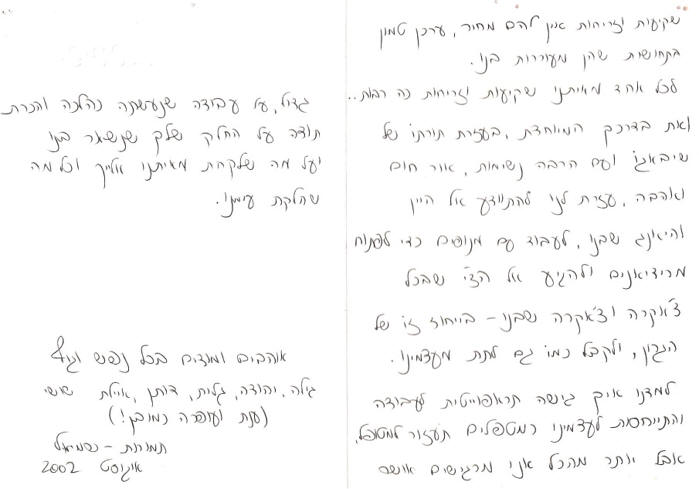 שקיעות וזריחות אין להם מחיר, ערכן טמון
בתחושות שהן מעוררות בנו.
לכל אחד מאיתנו שקיעות וזריחות כה רבות..
ואת בדרכך המיוחדת, בעזרת תורתו של
שיבאגו ועם הרבה נשימות, אור חום
ואהבה, עזרת לנו להתוודע אל היין
והיאנג שבנו, לעבוד עם מנופים כדי לפתוח
מרידיאנים ולהגיע אל הצ'י שבכל
צ'אקרה וצ'אקרה שבנו – בייחוד זו של
הגרון, ולקבל כמו גם לתת מעצמינו.
למדנו איך גישה תראפויטית לעבודה
והתייחסות לעצמינו כמטפלים תעזור למטופל,
אבל יותר מהכל אני מרגישים אושר
גדול, על עבודה שנעשתה כהלכה והכרת
תודה על החלק שלך שנשאר בנו
ועל מה שלקחת מאיתנו אלייך וכל מה
שחלקת עימנו.
אוהבים ומודים בכל נפש וגוף
גילה, יהודה, גלית, דותן, איילת שושי
(ענת ועופרה כמובן!)
תמורות -
אוגוסט 2002